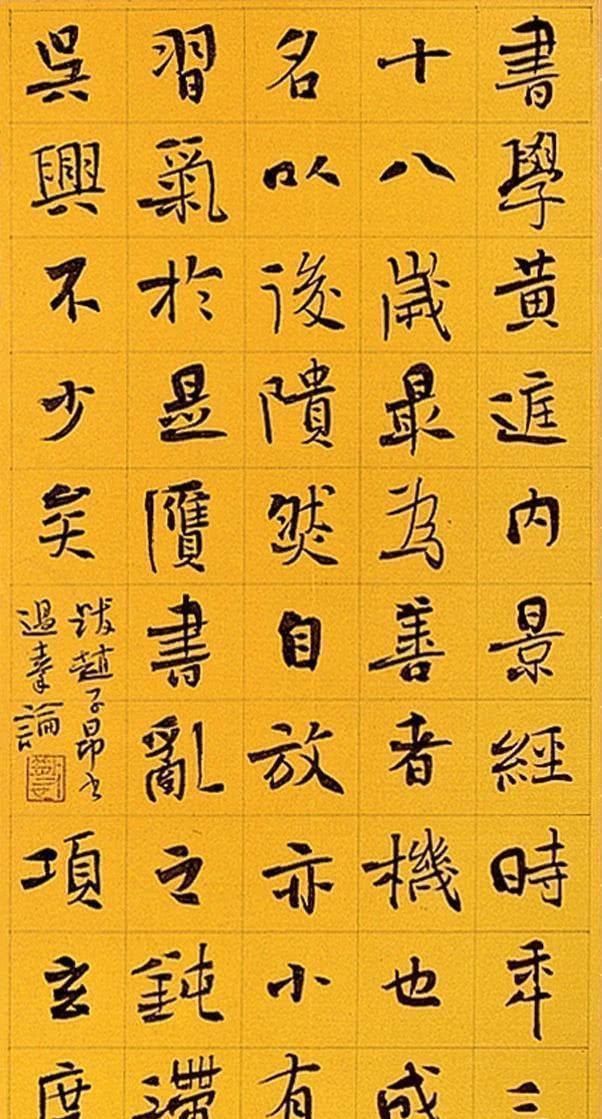 書學黃庭內景經時年
十八歲最為善者機也成
名以後隤然自放亦小有
習氣於是贗書亂之鈍滯
吳興不少矣
跋趙子昂書
過秦論
項玄度